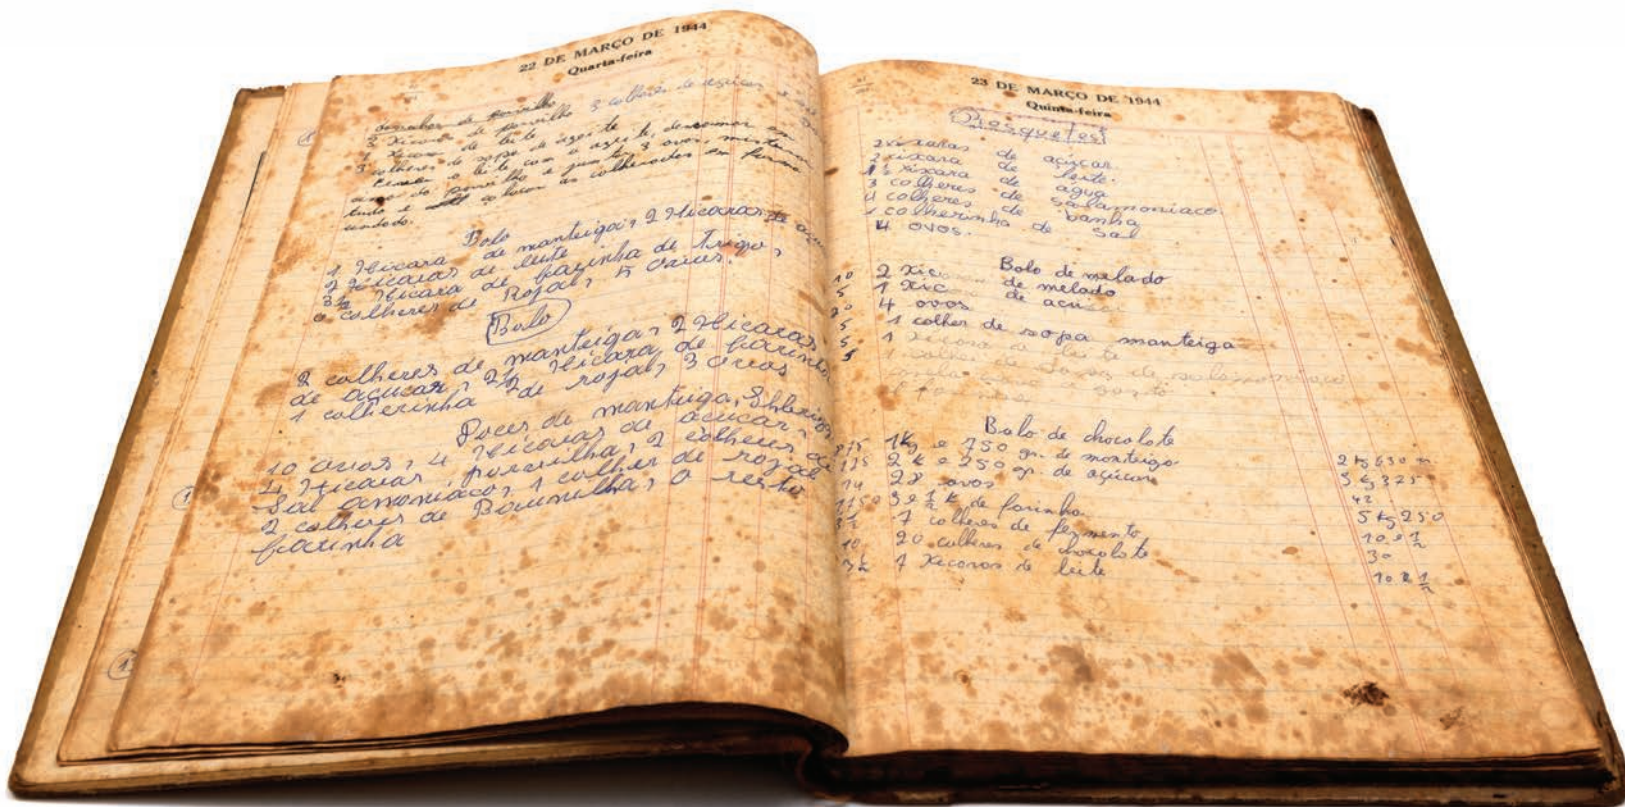 22 DE MARÇO DE 1944
Quarta-feira
de porvilho
3 Xicaras de porvilho 3 colheres de açucar e
1 Xicara de leite
3 colheres de sopa de azeite
o leite com o azeite, derramar em
cima do porvilho e juntar 3 ovos, misturar
tudo e colocar as colheradas em forma
untada.
Bolo
1 Hicara de manteiga, 2 Hicaras de açu
2 Hicaras de leite
3½ Hicara de farinha de Trigo,
colheres de Rojal, 5 ovos.
Bolo
2 colheres de manteiga, 2 Hicaras
de açucar, 2½ Hicara de farinha
1 colherinha de rojal, 3 ovos
Doces de manteiga,
10 ovos, 4 Hicaras de açucar,
4 Hicaras porvilha, 2 colheres de
Sal amoniaco, 1 colher de rojal
2 colheres de Baunilha, o resto
farinha
23 DE MARÇO DE 1944
Quinta-feira
Rosquetes
2 xixaras de açucar.
2 xixara de leite.
1½ xixara de agua
3 colheres de salamoniaco
4 colheres de banha
1 colherinha de sal
4 ovos.
Bolo de melado
10 2 xic de melado
5 1 xic de açu
20 4 ovos
5 1 colher de sopa manteiga
5 1 xicara de leite
5 1 colher de sopa de salamoniaco
canela cravo a gosto
e farinha
Bolo de chocolate
875 1Kg e 750 gr. de manteiga 2 kg 630
125 2 K e 250 gr. de açúcar 3 kg 375
14 28 ovos 42
1750 3 e ½ K de farinha 5 kg 250
3½ 7 colheres de fermento 10 e ½
10 20 colheres de chocolate 30
3½ 7 xicaras de leite 10 e ½